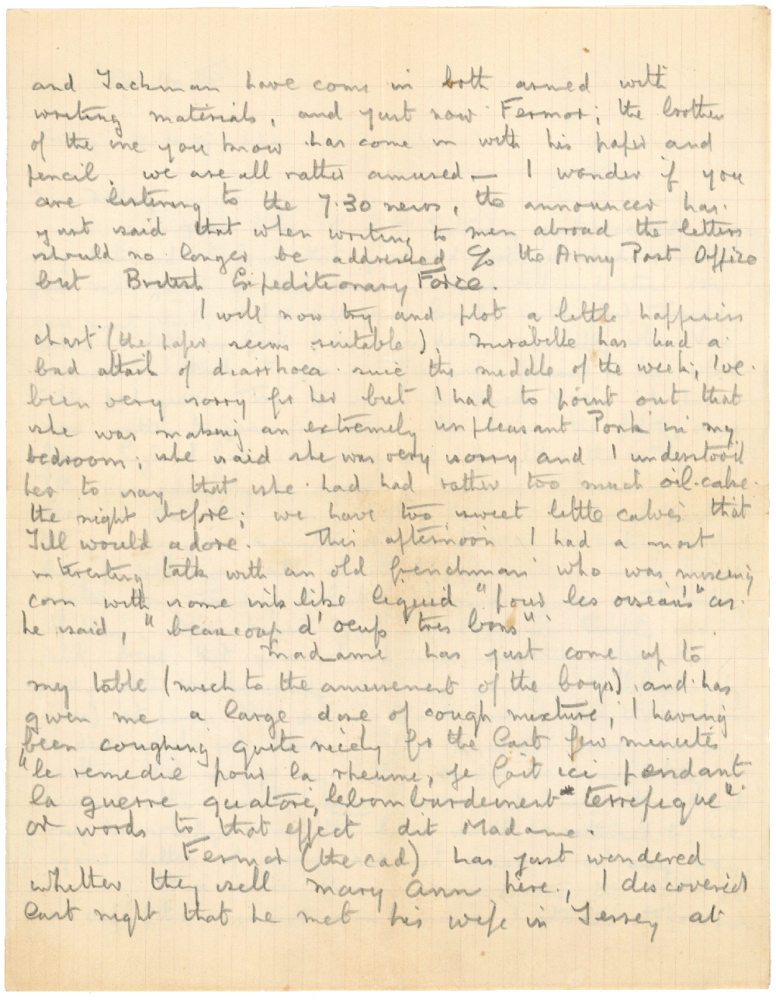 and Jackman have come in both armed with
writing materials, and just now Fermor; the brother
of the one you know has come in with his paper and
pencil. we are all rather amused — I wonder if you
are listening to the 7.30 news, the announcer has
just said that when writing to men abroad the letters
should no longer be addressed c/o the Army Post Office
but British Expeditionary Force.
I will now try and plot a little happiness
chart (the paper seems suitable). Mirabelle has had a
bad attack of diarrhoea since the middle of the week, I've
been very sorry for her but I had to point out that
she was making an extremely unpleasant Ponk in my
bedroom; she said she was very sorry and I understood
her to say that she had had rather too much oil-cake
the night before; we have two sweet little calves that
Jill would adore. This afternoon I had a most
interesting talk with an old frenchman who was mixing
corn with some ink like liquid "pour les oiseaus" as
he said, "beaucoup d'oeufs tres bons".
Madame has just come up to
my table (much to the amusement of the boys) and has
given me a large dose of cough mixture; I having
been coughing quite nicely for the last few minutes
"le remedie pour la rheume, je fait ici pendant
la guerre quatore, le bombardement terrefique"
or words to that effect dit Madame.
Fermor (the cad) has just wondered
whether they sell Mary Ann here., I discovered
last night that he met his wife in Jersey at